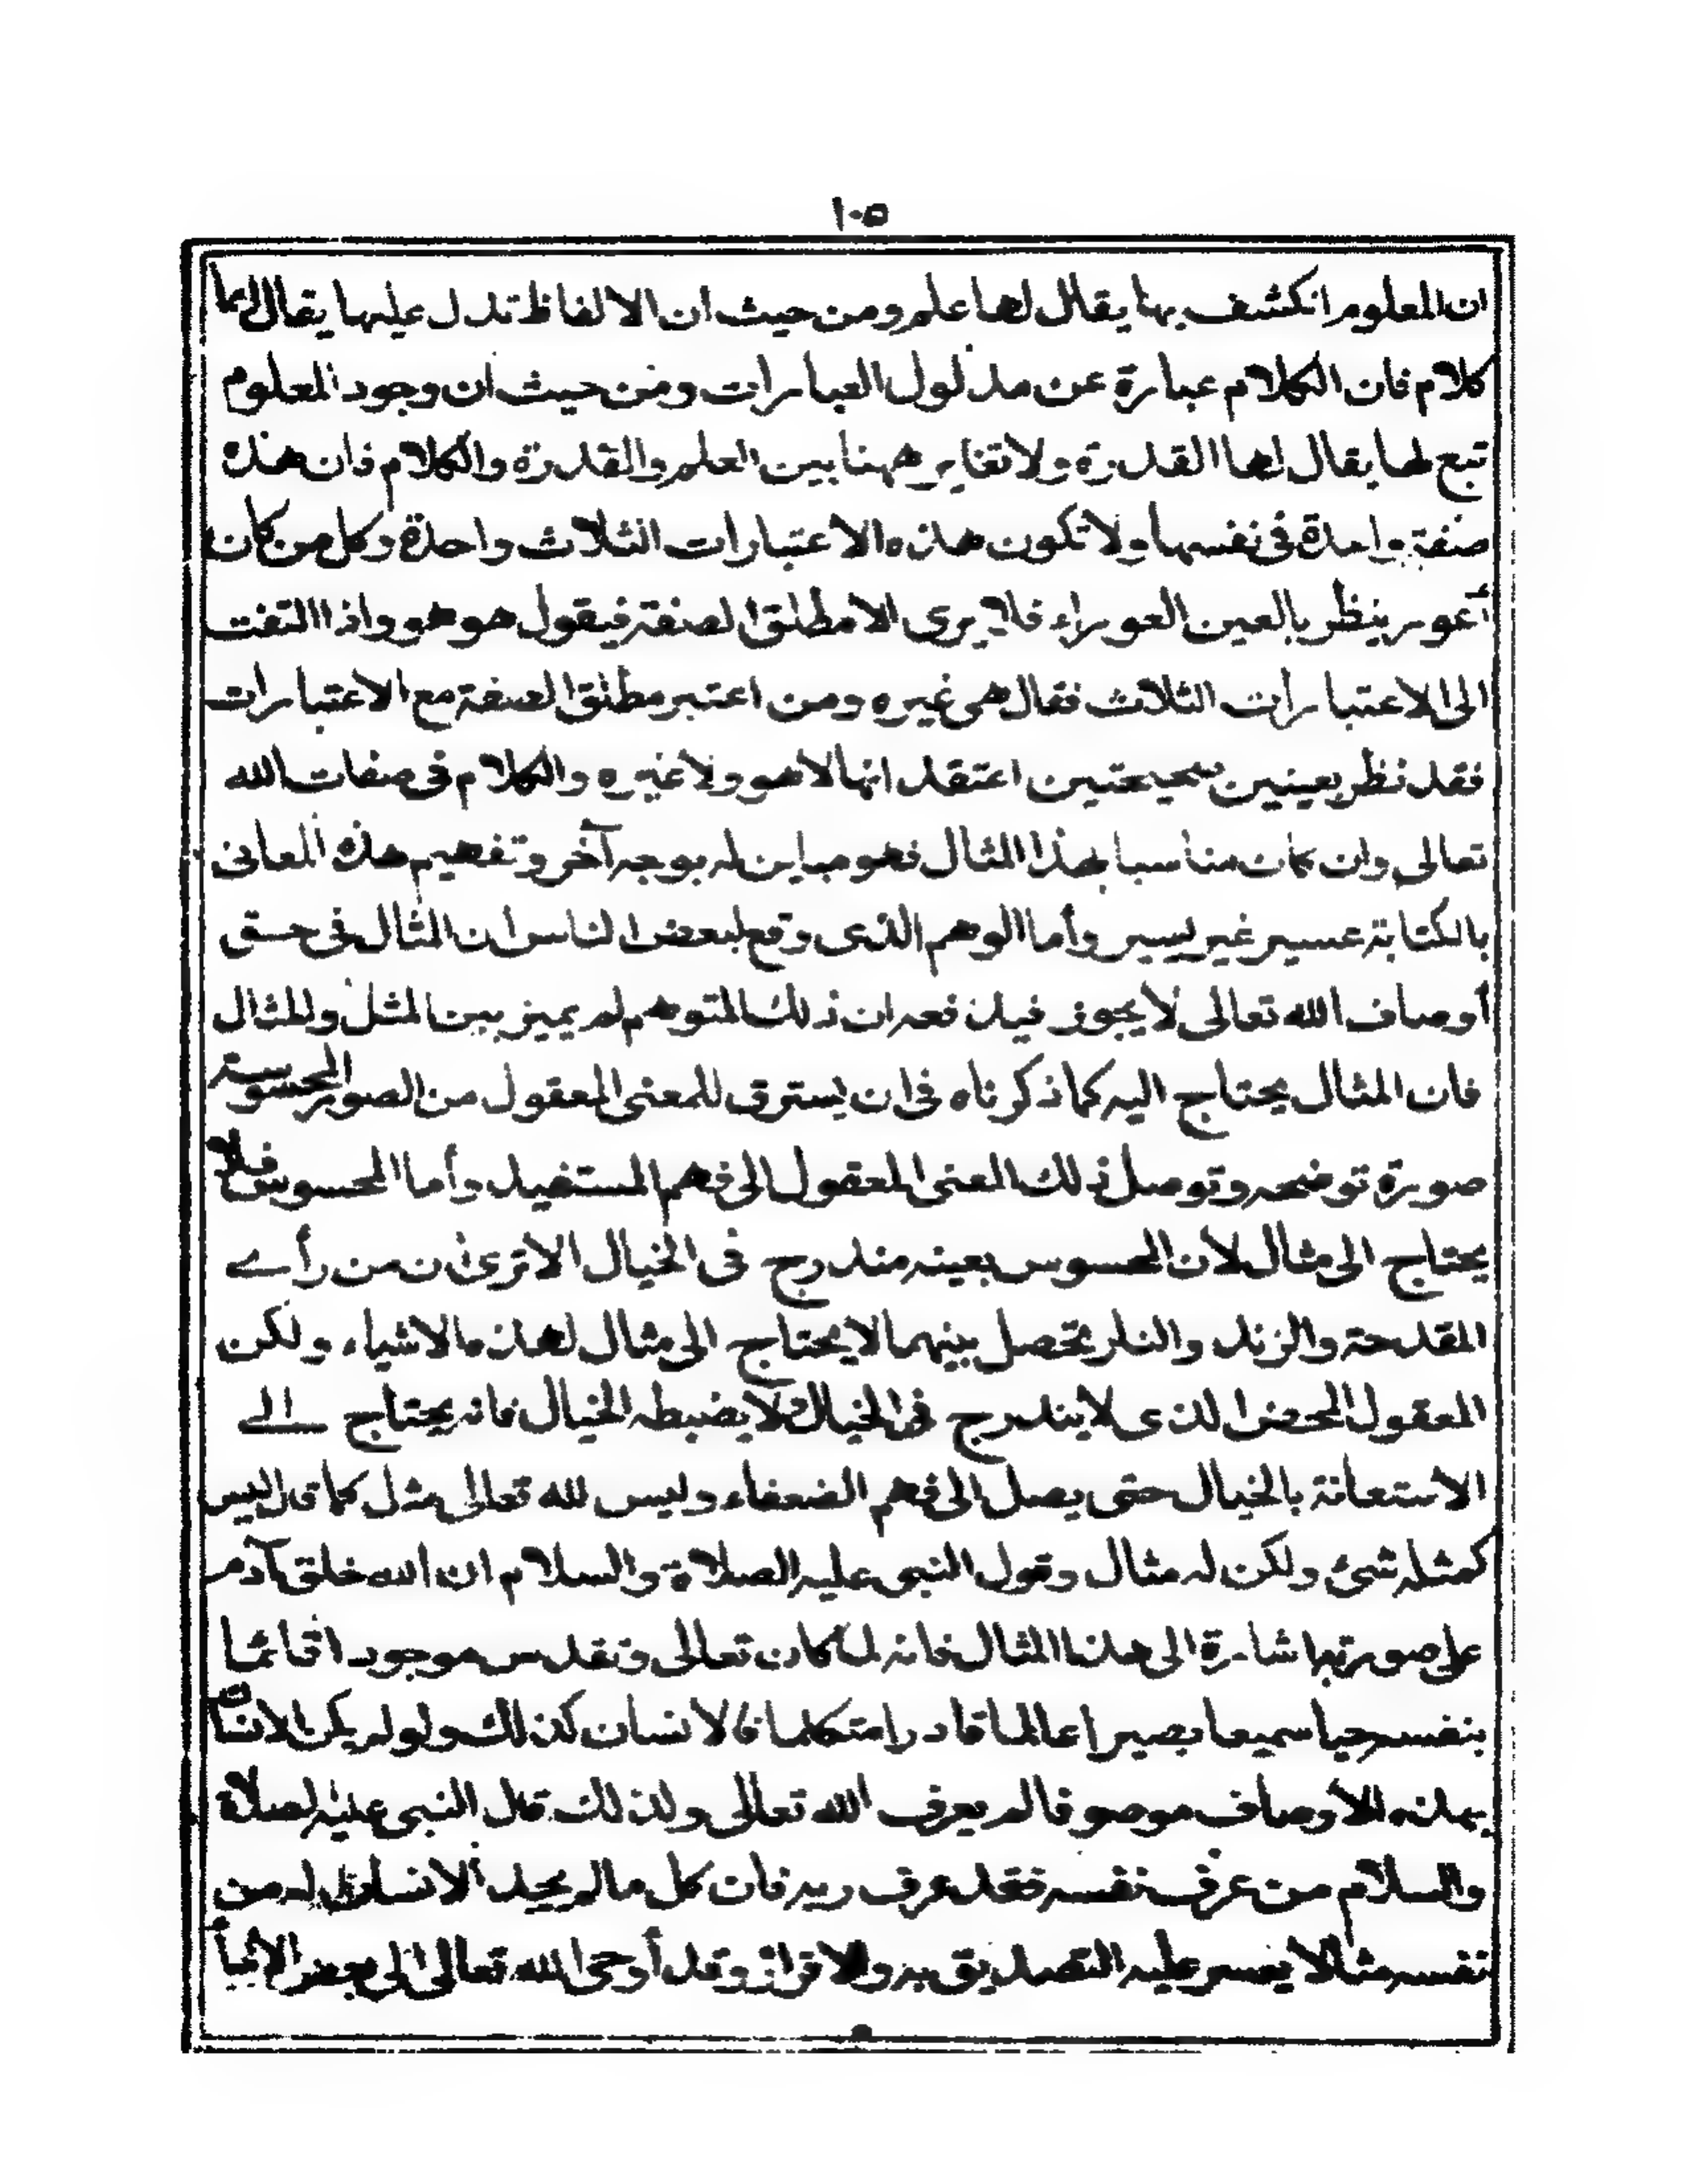 ١٠٥
ان المعلوم انكشف بها يقال لها علم ومن حيث ان الالفاظ تدل عليها يقال لها
كلام فان الكلام عبارة عن مدلول العبارات ومن حيث أن وجود المعلوم
تبع لها يقال لها القدرة ولا تغاير ههنا بين العلم والقدرة والكلام فان هذه
صفة واحدة في نفسها ولا تكون هذه الاعتبارات الثلاث واحدة وكل من كان
أعور ينظر بالعين العوراء فلا يرى الا مطلق الصفة فيقول هو هو واذا التفت
الى الاعتبارات الثلاث فقال هي غيره ومن اعتبر مطلق الصفة مع الاعتبارات
فقد نظر بعينين صحيحتين اعتقد انها لا هو ولا غيره والكلام في صفات الله
تعالى وان كان مناسبا بهذا المثال فهو مباين له بوجه آخر وتفهيم هذه المعانى
بالكتابة عسير غير يسير وأما الوهم الذى وقع لبعض الناس ان المثال في حق
أوصاف الله تعالى لا يجوز فيدفعه ان ذلك المتوهم لم يميز بين المثل والمثال
فان المثال يحتاج اليه كما ذكرناه في ان يسترق للمعنى المعقول من الصور المحسوسة
صورة توضحه وتوصل ذلك المعنى المعقول الى فهم المستفيد وأما المحسوس فلا
يحتاج الى مثال لأن المحسوس بعينه مندرج في الخيال الا ترى ان من رأى
المقدحة والزند والنار تحصل بينهما لا يحتاج الى مثال لهذه الاشياء ولكن
المعقول المحض الذى لا يندرج في الخيال لا يضبطه الخيال فانه يحتاج الى
الاستعانة بالخيال حتى يصل الى فهم الضعفاء وليس لله تعالى مثل كما قال ليس
كمثله شئ ولكن له مثال وقول النبى عليه الصلاة والسلام ان الله خلق آدم
على صورته اشارة الى هذا المثال فانه لما كان تعالى وتقدس موجودا قائما
بنفسه حيا سميعا بصيرا عالما قادرا متكلما فالانسان كذلك ولو لم يكن الانسان
بهذه الأوصاف موصوفا لم يعرف الله تعالى ولذلك قال النبى عليه الصلاة
والسلام من عرف نفسه فقد عرف ربه فان كل ما لم يجد الانسان له من
نفسه مثالا يعسر عليه التصديق به والاقرار وقد أوحى الله تعالى الى بعض الانبيا